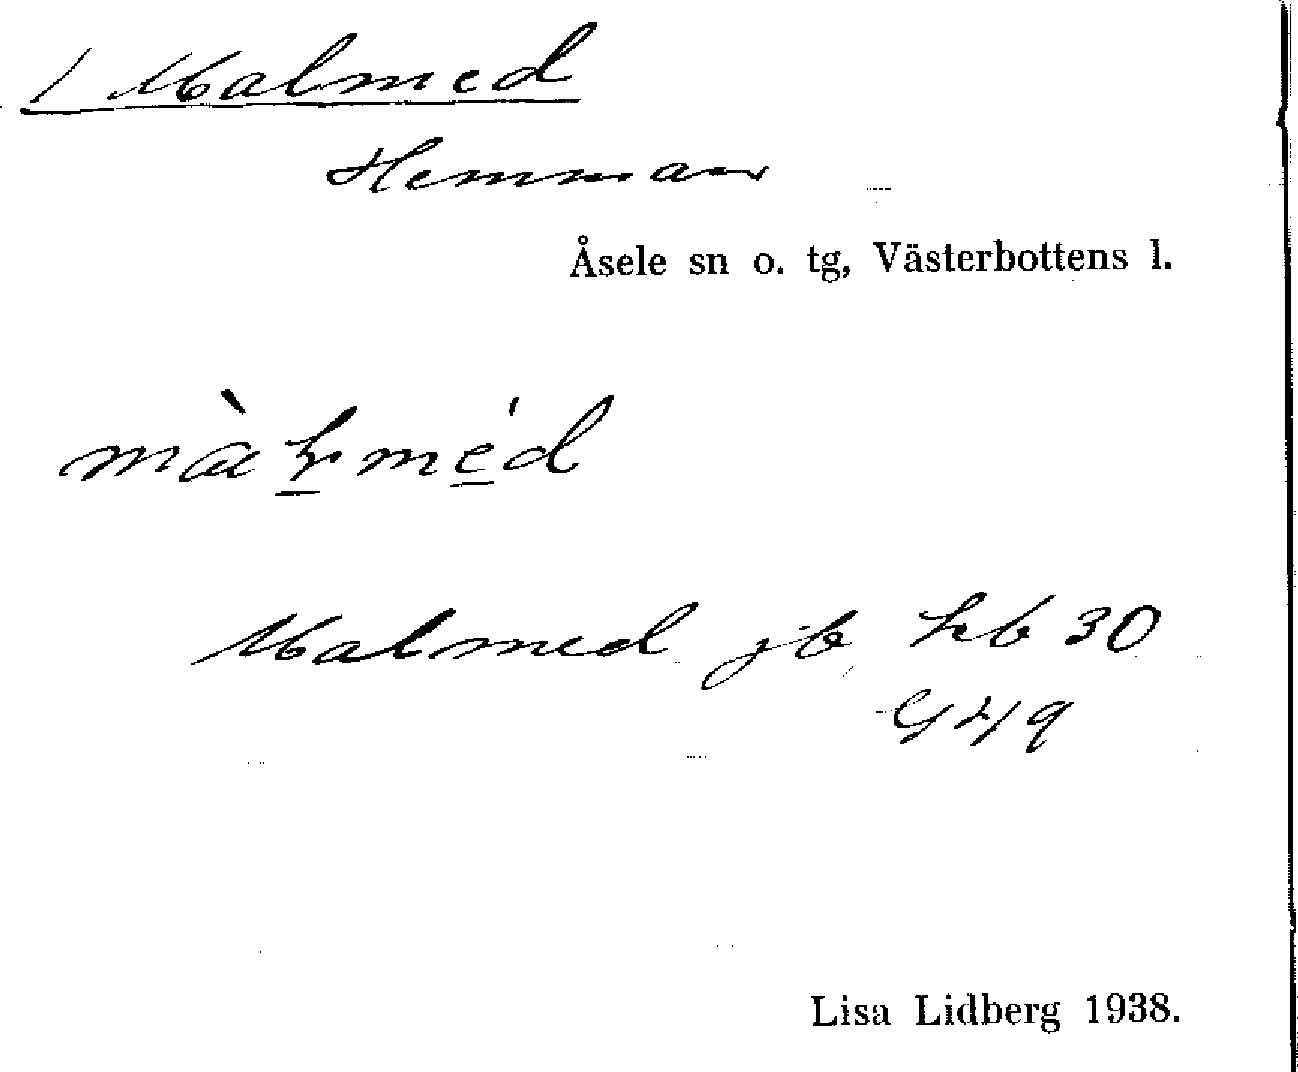 / Malmed
Hemman
Åsele sn o. tg, Västerbottens l.
Malmed jb hb 30
G 49
Lisa Lidberg 1938.